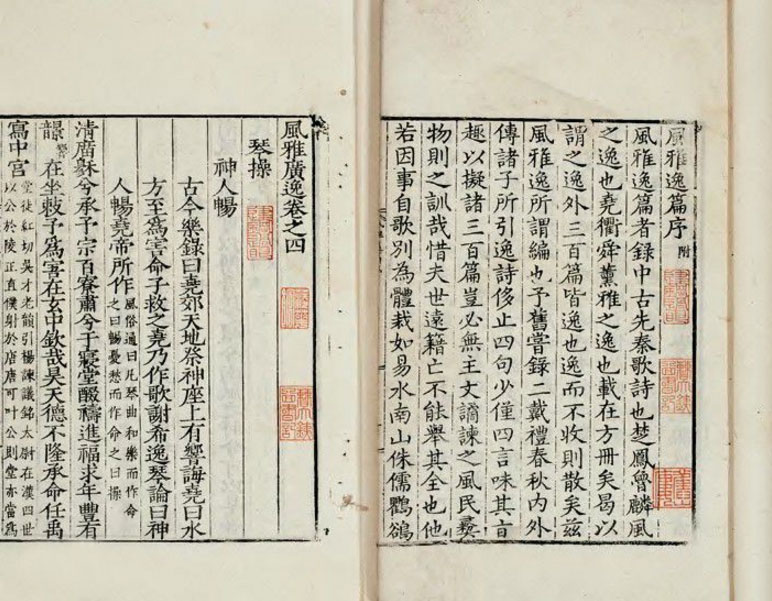 風雅逸篇序 附
風雅逸篇者録中古先秦歌詩也楚鳳魯麟風
之逸也堯衢舜薰雅之逸也載在方冊矣曷以
謂之逸外三百篇皆逸也逸而不收則散矣茲
風雅逸所謂編也予舊嘗録二戴禮春秋内外
傳諸子所引逸詩侈止四句少僅四言味其言
趣以擬諸三百篇豈必無主文譎諫之風民彝
物則之訓哉惜夫世遠籍亡不能舉其全也他
若因事自歌別為體裁如易水南山侏儒鸜鵒
風雅廣逸卷之四
琴操
神人暢
古今樂録曰堯郊天地祭神座上有響誨堯曰水
方至為害命子救之堯乃作歌謝希逸琴論曰神
人暢堯帝所作 風俗通曰凡琴曲和樂而作命
之曰暢憂愁而作命之曰操
清廟穆兮承予宗百寮肅兮于寢堂醊禱進福求年豐有
響在坐敕予為害在玄中欽哉昊天德不隆承命任禹
寫中宮 堂徒紅切吳才老韻引楊諫議銘太尉在漢四世
以公於陵正直僕射於唐唐可叶公則堂亦當為